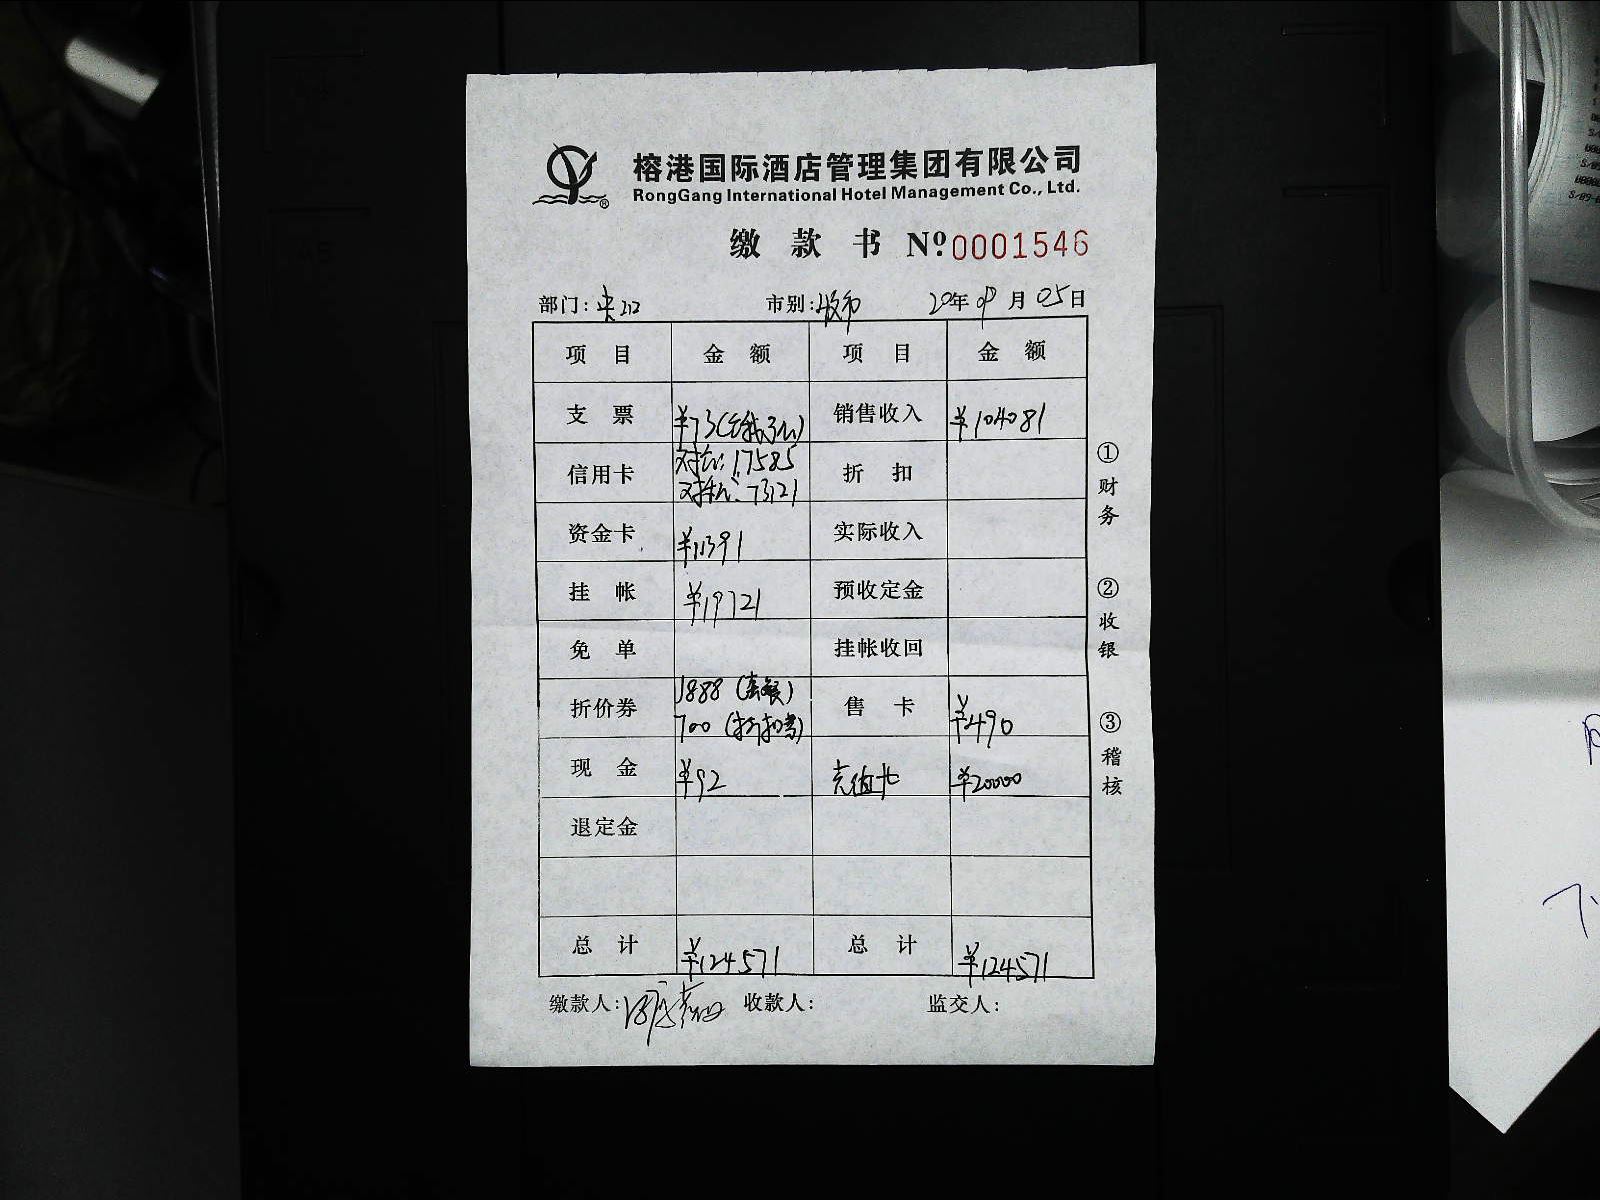 榕港国际酒店管理集团有限公司
RongGang International Hotel Management Co., Ltd.
缴 款 书 Nº 0001546
部门: 市别: 20年09月05日
项 目 金 额 项 目 金 额
支 票 ¥73 销售收入 ¥104081
信用卡 17585 折 扣
73121
资金卡 ¥11391 实际收入
挂 帐 ¥19721 预收定金
免 单 挂帐收回
折价券 1888 (套餐) 售 卡 ¥490
700 (折扣券)
现 金 ¥92 充值卡 ¥20000
退定金
总 计 ¥124571 总 计 ¥124571
缴款人: 收款人: 监交人:
①财务
②收银
③稽核